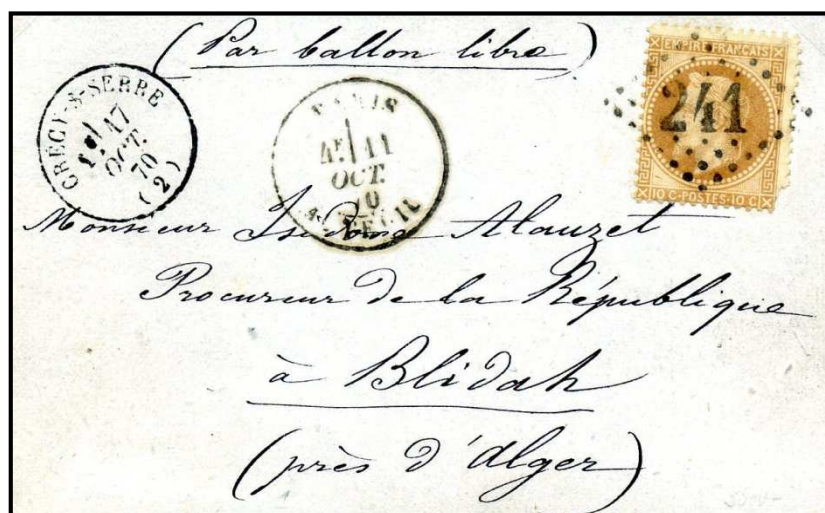 (Par ballon libre)
CRECY-S-SERRE
17
OCT.
70
(2)
PARIS
4E 11
OCT.
70
EMPIRE FRANÇAIS
241
10 C-POSTES-10 C
Monsieur Isidome Alauzet
Procureur de la République
à Blidah
(près d'Alger)